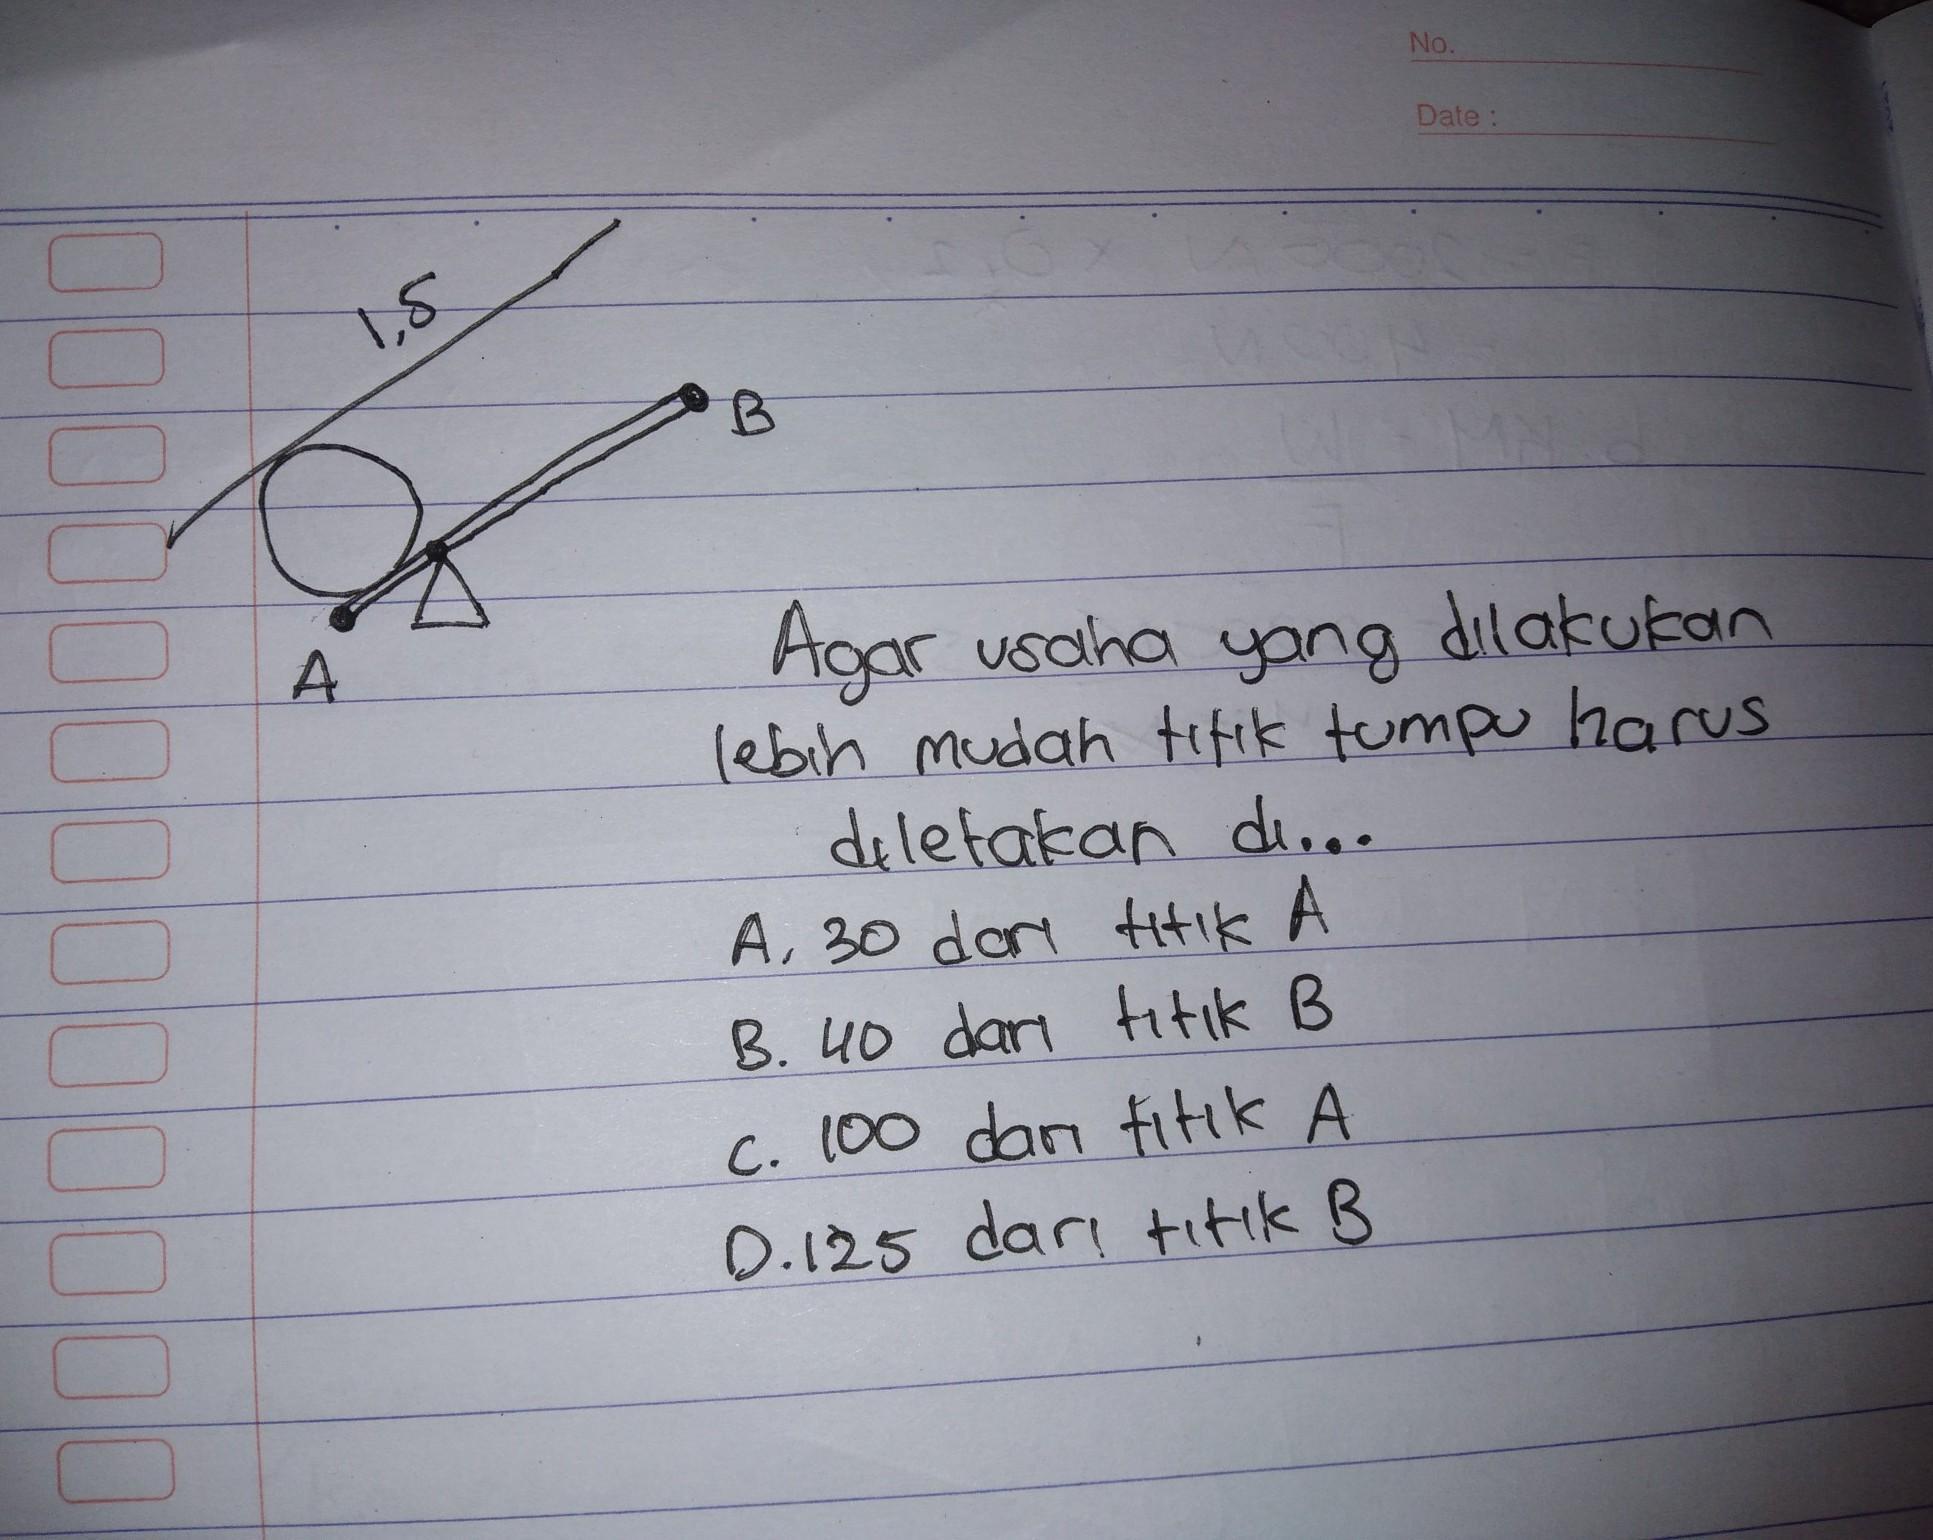 No.
Date :
1,5
B
A
Agar usaha yang dilakukan
lebih mudah titik tumpu harus
diletakan di...
A. 30 dari titik A
B. 40 dari titik B
C. 100 dari titik A
D. 125 dari titik B